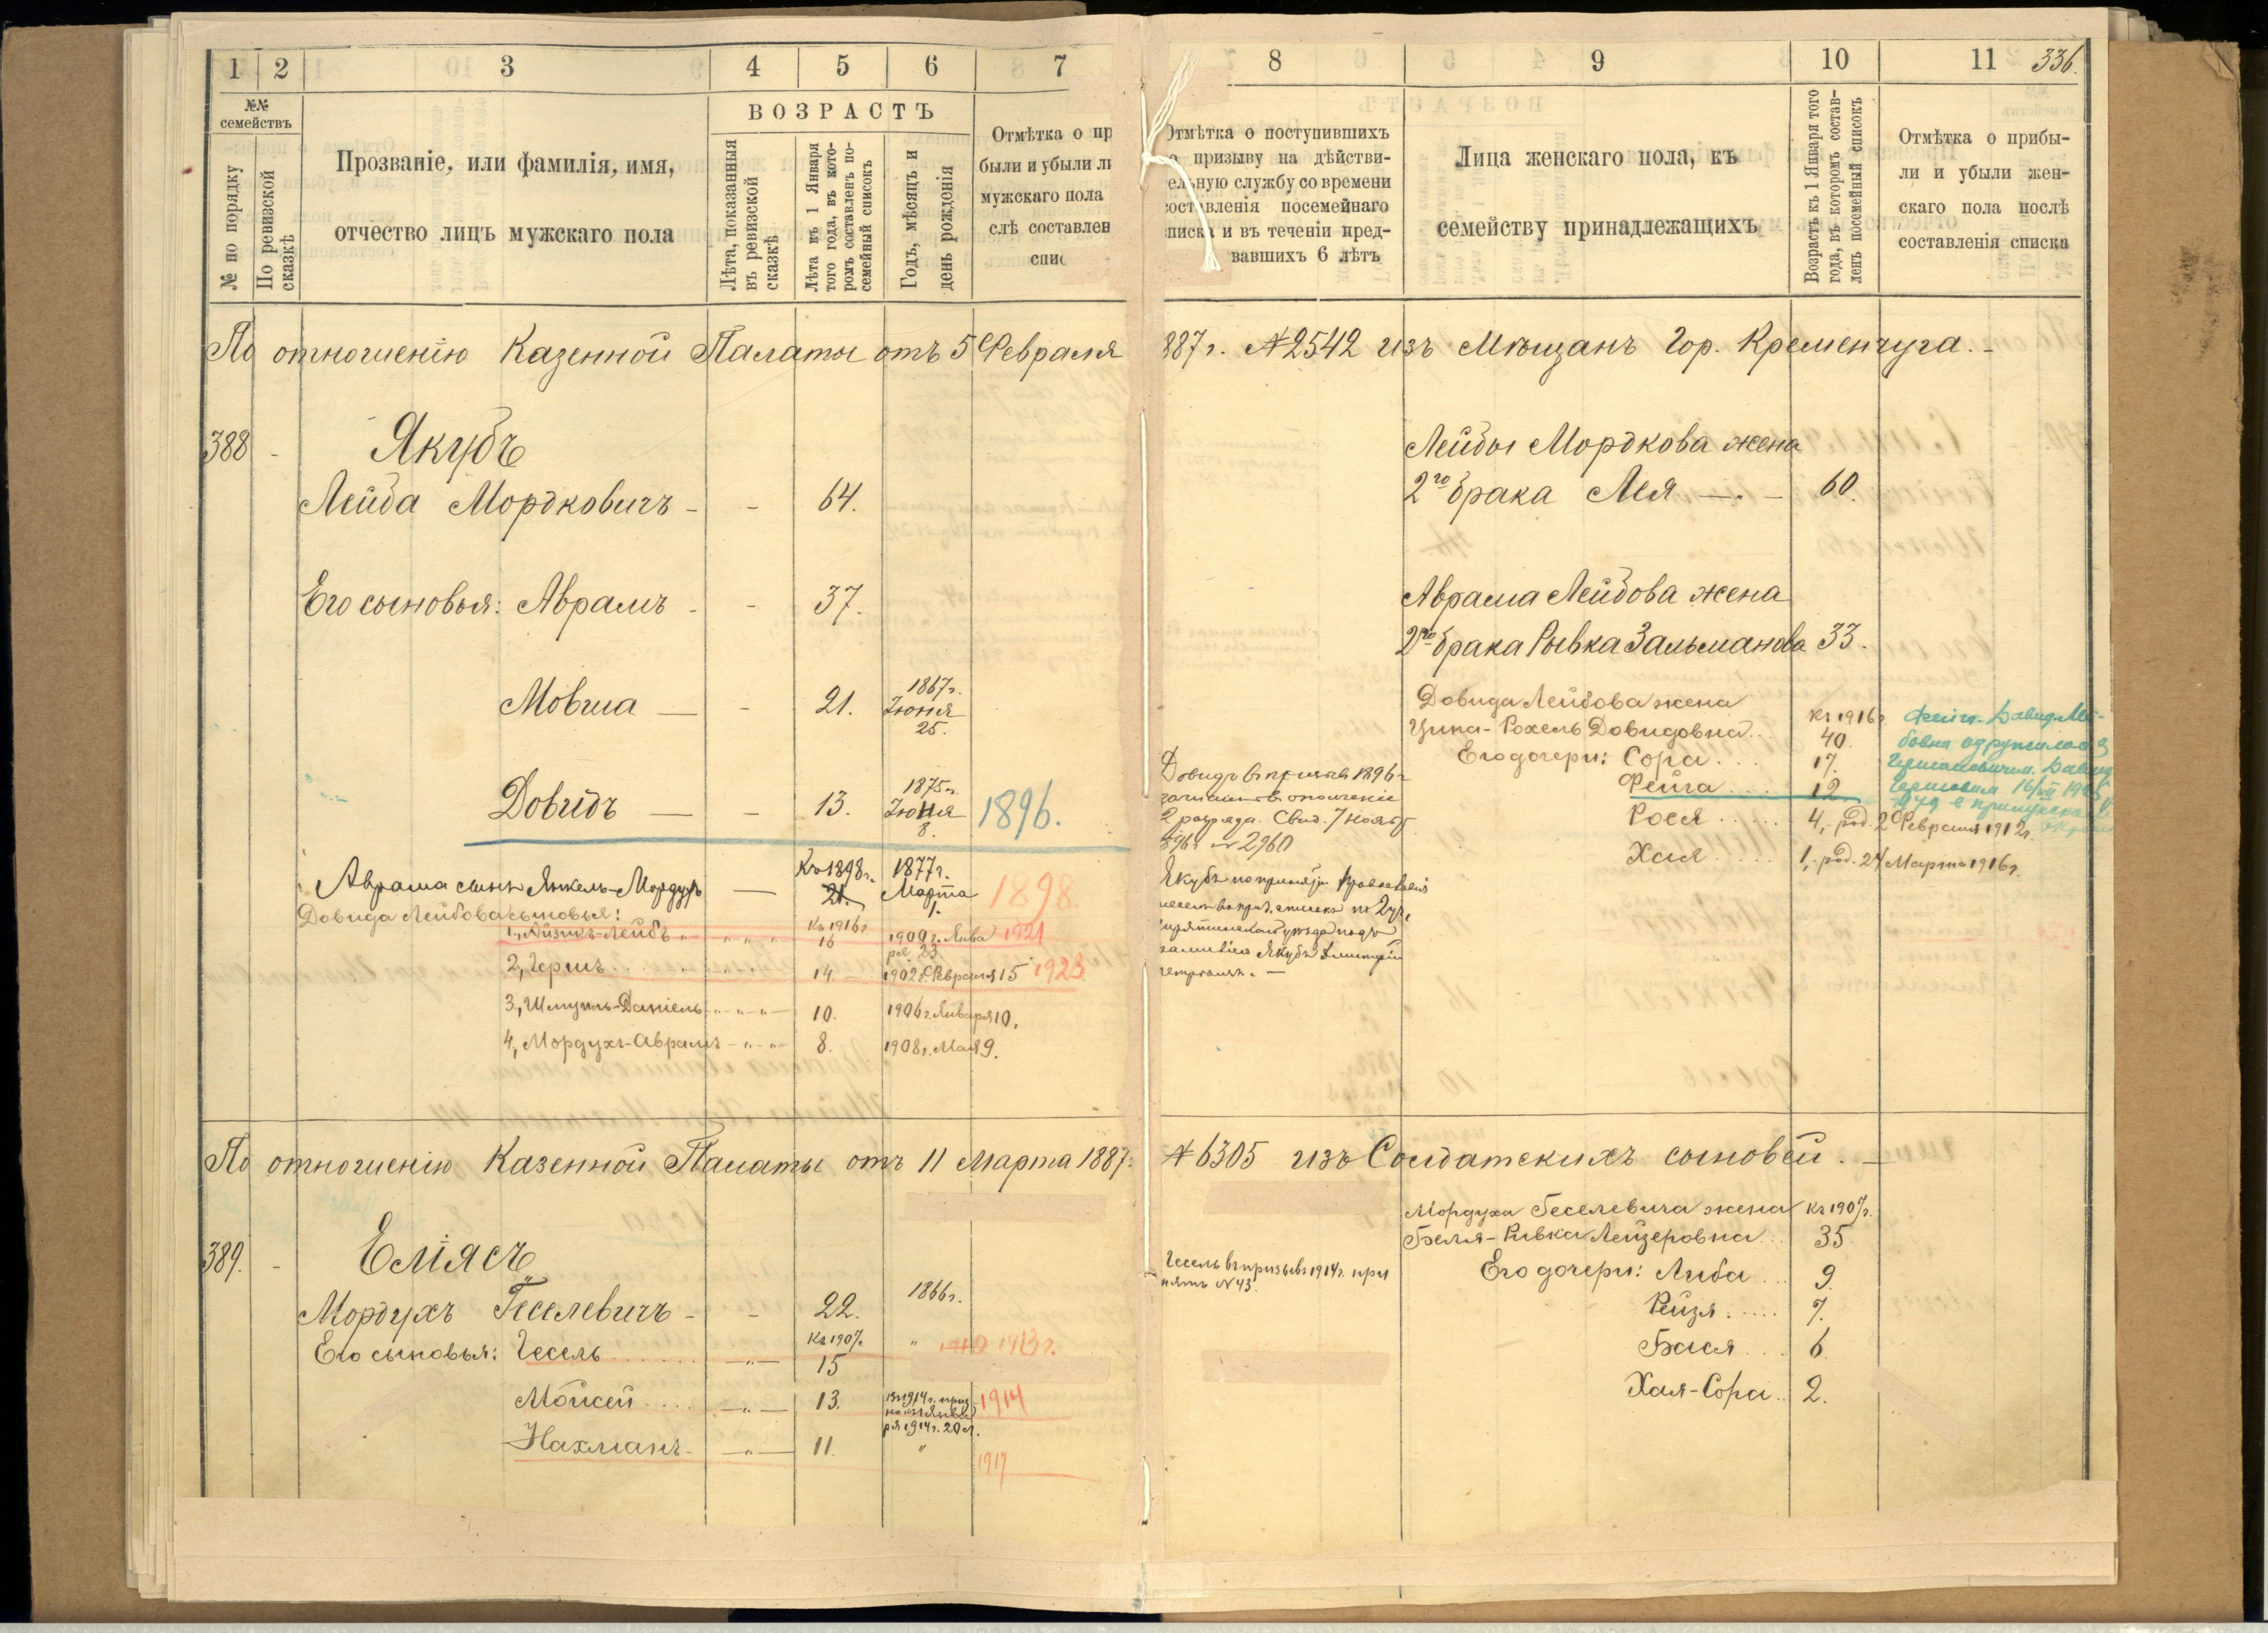 1 2 3 4 5 6 7
№№ семействъ
№ по порядку
По ревизской сказкѣ
Прозваніе, или фамилія, имя,
отчество лицъ мужскаго пола
ВОЗРАСТЪ
Лѣта, показанныя
въ ревизской
сказкѣ
Лѣта къ 1 Января
того года, въ кото-
ромъ составленъ по-
семейный списокъ
Годъ, мѣсяцъ и
день рожденія
Отмѣтка о пр
были и убыли ли
мужскаго пола
слѣ составлен
спис
По отношенію Казенной Палаты отъ 5 Февраля
388 - Якубъ
Лейба Мордковичъ - - 64.
Его сыновья: Аврамъ - - 37.
Мовша — - 21. 1867г.
Іюня
25.
Довидъ — - 13. 1875г.
Іюня
8. 1896.
Аврама сынъ Янкель-Мордухъ — Къ 1898г.
21. 1877г.
Марта
1. 1898.
Довида Лейбова сыновья:
1., Айзикъ-Лейбъ Къ 1916г
16 1900г. Янва
ря 23 1921
2, Гершъ 14 1902г. Февраля 15 1923
3., Шмуиль-Даніель 10. 1906г. Января 10.
4, Мордухъ-Аврамъ 8. 1908г. Мая 9.
По отношенію Казенной Палаты отъ 11 Марта 1887г.
389. - Еліясъ
Мордухъ Геселевичъ - - 22. 1866г.
Его сыновья: Гесель Къ 1907г.
15 " 1913г.
Мойсей 13. 1914
Января 1914г. 20 л.
Нахманъ 11. " 1917
8 9 10 11 336.
Отмѣтка о поступившихъ
по призыву на дѣйстви-
ельную службу со времени
составленія посемейнаго
списка и въ теченіи пред-
вавшихъ 6 лѣтъ
Лица женскаго пола, къ
семейству принадлежащихъ
Возрастъ къ 1 Января того
года, въ которомъ состав-
ленъ посемейный списокъ
Отмѣтка о прибы-
ли и убыли жен-
скаго пола послѣ
составленія списка
887г. № 2542 изъ Мѣщанъ Гор. Кременчуга. -
Лейбы Мордкова жена
2го брака Лея — - 60.
Аврама Лейбова жена
2го брака Рывка Зальманова 33.
Довида Лейбова жена
Ципа-Рохель Довидовна Къ 1916г.
40.
Его дочери: Сора 17.
Фейга 12
Рося 4, - род. 2 Февраля 1912г.
Хая 1, - род. 24 Марта 1916г.
Довидъ въ призыв 1896г
зачисленъ въ ополченіе
2 разряда. Свид. 7 Нояб
№ 2960
Якубъ по принятіи Православія
№ 6305 изъ Солдатскихъ сыновей. —
Гесель въ призывъ 1914г. при
нятъ № 43.
Мордуха Геселевича жена Къ 1907г.
Бейля-Ривка Лейзеровна 35
Его дочери: Либа 9.
Рейзя 7.
Бася 6
Хая-Сора 2.